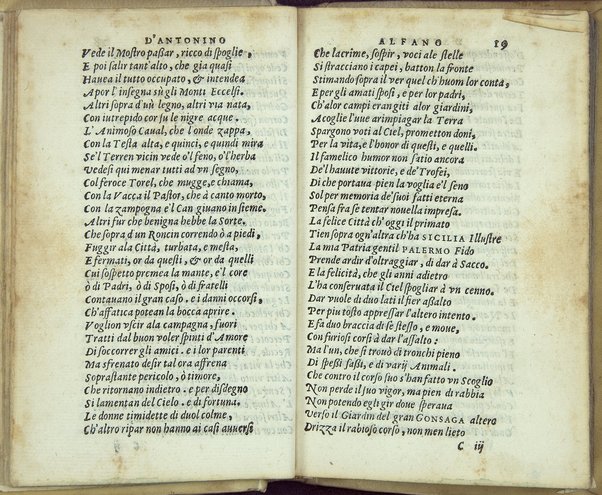 D'ANTONINO
Vede il Mostro paßar, ricco di spoglie,
E poi salir tant'alto, che gia quasi
Hauea il tutto occupato, & intendea
Apor l'insegna sù gli Monti Eccelsi.
Altri sopra d'uń legno, altri via nata,
Con intrepido cor sù le nigre acque.
L'Animoso Caual, che l'onde zappa,
Con la Testa alta, e quinci, e quindi mira
Se'l Terren vicin vede o'l seno, o'l'herba
Vedesi qui menar tutti ad vn segno,
Col feroce Torel, che mugge, e chiama,
Con la Vacca il Pastor, che à canto morto,
Con la zampogna e'l Can giuano insieme.
Altri fur che benigna hebbe la Sorte,
Che sopra d'un Roncin correndo ò a piedi,
Fuggir ala Città, turbata, e mesta,
E fermati, or da questi, & or da quelli
Cui sospetto premea la mante, e'l core
ò di Padri, ò di Sposi, ò di fratelli
Contauano il gran caso, e i danni occorsi,
Ch'affatica potean la bocca aprire.
Voglion vscir ala campagna, fuori
Tratti dal buon voler spinti d'Amore
Di soccorrer gli amici. e i lor parenti
Ma sfrenato desir tal ora affrena
Soprastante pericolo, ò timore,
Che ritornano indietro. e per disdegno
Si lamentan del Cielo. e di fortuna.
Le donne timidette di duol colme,
Ch'altro ripar non hanno ai casi auuersi
ALFANO 19
Che lacrime, sospir, voci ale stelle
Si stracciano i capei, batton la fronte
Stimando sopra il ver quel ch'huom lor conta,
E per gli amati sposi, e per lor padri,
Ch'alor campi erangiti alor giardini,
Acoglie l'uue arimpiagar la Terra
Spargono voti al Ciel, prometton doni,
Per la vita, e l'honor di questi, e quelli.
Il famelico humor non satio ancora
De l'hauute vittorie, e de'Trofei,
Di che portaua pien la voglia e'l seno
Sol per memoria de'suoi fatti eterna
Pensa fra se tentar nouella impresa.
La felice Città ch'oggi il primato
Tien sopra ogn'altra ch'ha SICILIA Illustre
La mia Patria gentil PALERMO Fido
Prende ardir d'oltraggiar, di dar à Sacco.
E la felicità, che gli anni adietro
L'ha conseruata il Ciel spogliar à vn cenno.
Dar vuole di duo lati il fier aßalto
Per piu tosto appressar l'altero intento.
E fa duo braccia di se stesso, e moue,
Con furiosi corsi à dar l'assalto:
Ma l'un, che si trouò di tronchi pieno
Di speßi saßi, e di varij Animali.
Che contro il corso suo s'han fatto vn Scoglio
Non perde il suo vigor, ma pien di rabbia
Non potendo egli gir doue speraua
Verso il Giardin del gran GONSAGA altero
Drizza il rabioso corso, non men lieto
C iij